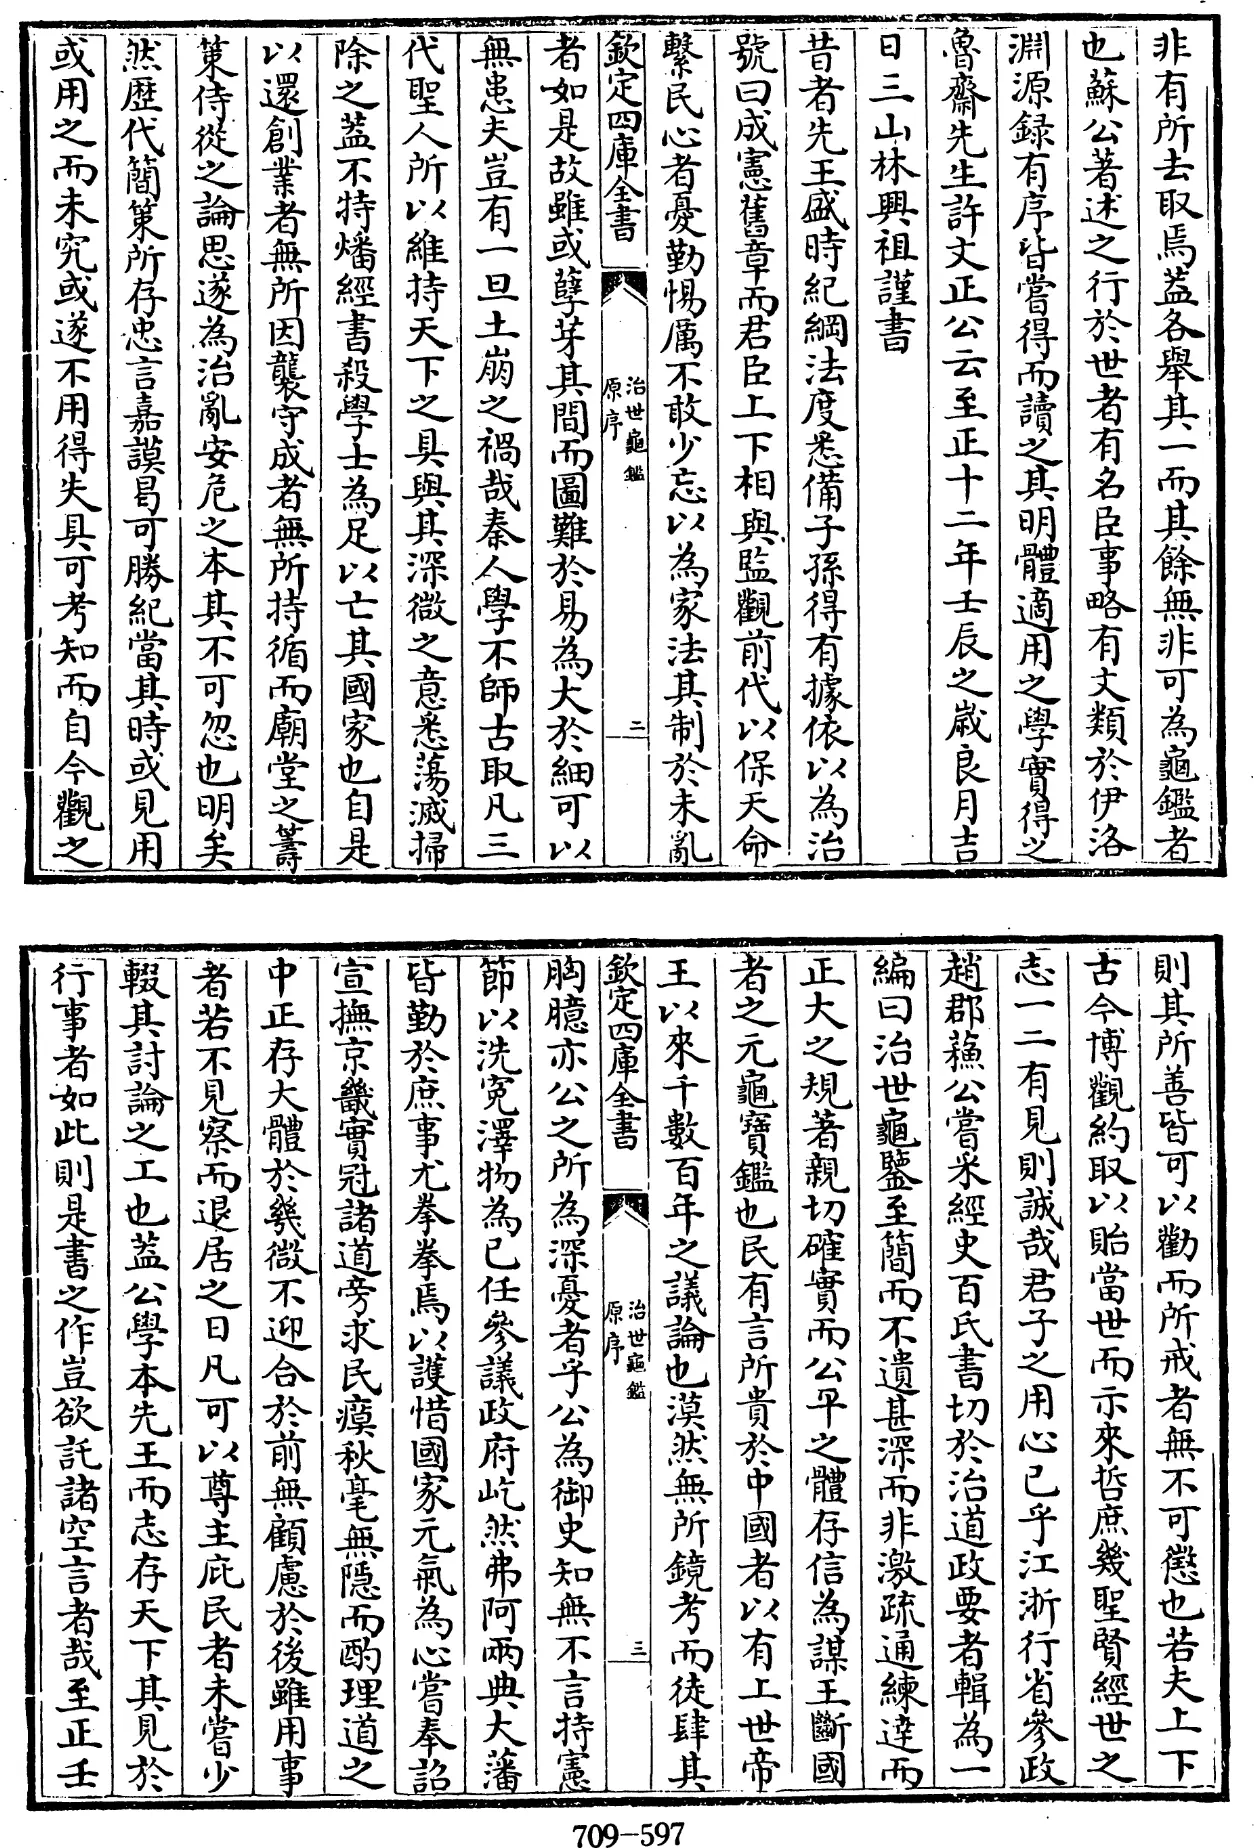 非有所去取焉葢各舉其一而其餘無非可為龜鑑者
也蘇公著述之行於世者有名臣事略有文類於伊洛
淵源録有序皆嘗得而讀之其明體適用之學實得之
魯齋先生許文正公云至正十二年壬辰之歲良月吉
日三山林興祖謹書
昔者先王盛時紀綱法度悉備子孫得有據依以為治
號曰成憲舊章而君臣上下相與監觀前代以保天命
繫民心者憂勤惕厲不敢少忘以為家法其制於未亂
欽定四庫全書
治世龜鑑
原序
二
者如是故雖或孽芽其間而圖難於易為大於細可以
無患夫豈有一旦土崩之禍哉秦人學不師古取凡三
代聖人所以維持天下之具與其深微之意悉蕩滅掃
除之葢不特燔經書殺學士為足以亡其國家也自是
以還創業者無所因襲守成者無所持循而廟堂之籌
策侍從之論思遂為治亂安危之本其不可忽也明矣
然歷代簡策所存忠言嘉謨曷可勝紀當其時或見用
或用之而未究或遂不用得失具可考知而自今觀之
則其所善皆可以勸而所戒者無不可懲也若夫上下
古今博觀約取以貽當世而示來哲庶幾聖賢經世之
志一二有見則誠哉君子之用心已乎江浙行省參政
趙郡蘓公嘗采經史百氏書切於治道政要者輯為一
編曰治世龜鑒至簡而不遺甚深而非激疏通練達而
正大之規著親切確實而公平之體存信為謀王斷國
者之元龜寶鑑也民有言所貴於中國者以有上世帝
王以來千數百年之議論也漠然無所鏡考而徒肆其
欽定四庫全書
治世龜鑑
原序
三
胸臆亦公之所為深憂者乎公為御史知無不言持憲
節以洗寃澤物為已任參議政府屹然弗阿兩典大藩
皆勤於庶事尤拳拳焉以護惜國家元氣為心嘗奉詔
宣撫京畿實冠諸道旁求民瘼秋毫無隱而酌理道之
中正存大體於幾微不迎合於前無顧慮於後雖用事
者若不見察而退居之日凡可以尊主庇民者未嘗少
輟其討論之工也葢公學本先王而志存天下其見於
行事者如此則是書之作豈欲託諸空言者哉至正壬
709-597